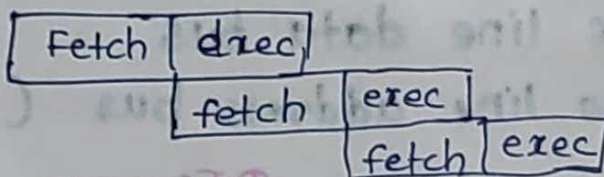 Fetch dxec
fetch exec
fetch exec